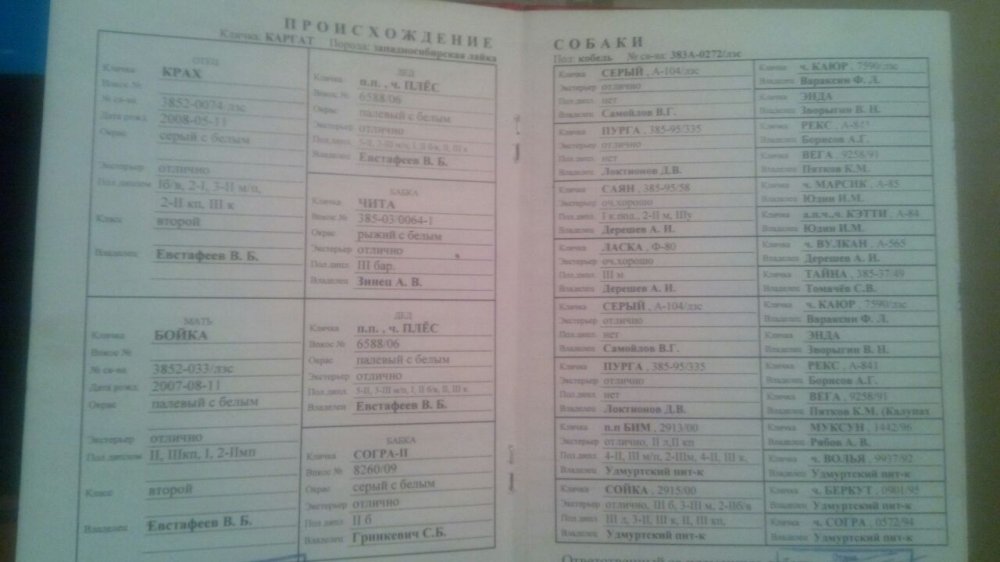 ПРОИСХОЖДЕНИЕ
Кличка: КАРГАТ Порода: западносибирская лайка
ОТЕЦ
Кличка КРАХ
Впкос №
№ св-ва 3852-0074/лзс
Дата рожд. 2008-05-11
Окрас серый с белым
Экстерьер отлично
Пол.диплом Iб/в, 2-I, 3-II м/п,
2-II кп, III к
Класс второй
Владелец Евстафеев В. Б.
МАТЬ
Кличка БОЙКА
Впкос №
№ св-ва 3852-033/лзс
Дата рожд. 2007-08-11
Окрас палевый с белым
Экстерьер отлично
Пол.диплом II, IIIкп, I, 2-IIмп
Класс второй
Владелец Евстафеев В. Б.
ДЕД
Кличка п.п. , ч. ПЛЁС
Впкос № 6588/06
Окрас палевый с белым
Экстерьер отлично
Пол.дипл.
Владелец Евстафеев В. Б.
БАБКА
Кличка ЧИТА
Впкос № 385-03/0064-1
Окрас рыжий с белым
Экстерьер отлично
Пол.дипл. III бар.
Владелец Зинец А. В.
ДЕД
Кличка п.п. , ч. ПЛЁС
Впкос № 6588/06
Окрас палевый с белым
Экстерьер отлично
Пол.дипл. 5-II, 3-III м/п, I, II б/в, II, III к.
Владелец Евстафеев В. Б.
БАБКА
Кличка СОГРА-II
Впкос № 8260/09
Окрас серый с белым
Экстерьер отлично
Пол.дипл. II б
Владелец Гринкевич С.Б.
СОБАКИ
Пол: кобель № св-ва: 383А-0272/лзс
Кличка СЕРЫЙ , А-104/лзс
Экстерьер отлично
Пол.дипл. нет
Владелец Самойлов В.Г.
Кличка ПУРГА , 385-95/335
Экстерьер отлично
Пол.дипл. нет
Владелец Локтионов Д.В.
Кличка САЯН , 385-95/58
Экстерьер оч.хорошо
Пол.дипл. I к под., 2-II м, IIIу
Владелец Дерешев А. И.
Кличка ЛАСКА , Ф-80
Экстерьер оч.хорошо
Пол.дипл. III м
Владелец Дерешев А. И.
Кличка СЕРЫЙ , А-104/лзс
Экстерьер отлично
Пол.дипл. нет
Владелец Самойлов В.Г.
Кличка ПУРГА , 385-95/335
Экстерьер отлично
Пол.дипл. нет
Владелец Локтионов Д.В.
Кличка п.п БИМ , 2913/00
Экстерьер отлично, II л,II кп
Пол.дипл. 4-II, III м/п, 2-IIIм, 4-II, III к,
Владелец Удмуртский пит-к
Кличка СОЙКА , 2915/00
Экстерьер отлично, III б, 3-III м, 2-IIб/в
Пол.дипл. III л, 3-II, III к, II, III кп,
Владелец Удмуртский пит-к
Кличка ч. КАЮР , 7590/лзс
Владелец Вараксин Ф. Л.
Кличка ЭНДА
Владелец Зворыгин В. Н.
Кличка РЕКС , А-841
Владелец Борисов А.Г.
Кличка ВЕГА , 9258/91
Владелец Пятков К.М.
Кличка ч. МАРСИК , А-85
Владелец Юдин И.М.
Кличка ч. КЭТТИ , А-84
Владелец Юдин И.М.
Кличка ч. ВУЛКАН , А-565
Владелец Дерешев А. И.
Кличка ТАЙНА , 385-37/49
Владелец Томачёв С.В.
Кличка ч. КАЮР , 7590/лзс
Владелец Вараксин Ф. Л.
Кличка ЭНДА
Владелец Зворыгин В. Н.
Кличка РЕКС , А-841
Владелец Борисов А.Г.
Кличка ВЕГА , 9258/91
Владелец Пятков К.М. (Калупах
Кличка МУКСУН , 1442/96
Владелец Рябов А. В.
Кличка ч. ВОЛЬЯ , 9937/92
Владелец Удмуртский пит-к
Кличка ч. БЕРКУТ , 0901/95
Владелец Удмуртский пит-к
Кличка ч. СОГРА , 0572/94
Владелец Удмуртский пит-к